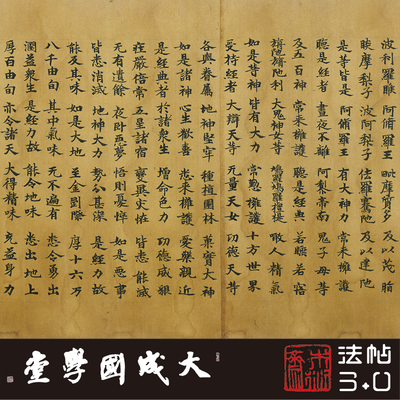 波利羅睺 阿脩羅王 毗摩質多 及以茂脂
睒摩梨子 波呵梨子 佉羅騫陀 及以揵陀
是等皆是 阿脩羅王 有大神力 常來擁護
聽是經者 晝夜不離 阿耨帝南 鬼子母等
及五百神 常來擁護 聽是經典 若睡若寤
旃陀旃陀利 大鬼神女等 鳩羅鳩羅檀提 噉人精氣
如是等神 皆有大力 常勤擁護 十方世界
受持經者 大辯天等 无量天女 功德天等
各與眷屬 地神堅牢 種植園林 菓實大神
如是諸神 心生歡喜 悉來擁護 愛樂親近
是經典者 於諸衆生 增命色力 功德威貌
莊嚴倍常 五星諸宿 變異灾怪 皆悉能滅
无有遺餘 夜卧惡夢 悟則憂悴 如是惡事
皆悉消滅 地神大力 勢分甚深 是經力故
能及其味 如是大地 至金剛際 厚十六万
八千由旬 其中氣味 无不遍有 悉令勇出
潤益衆生 是經力故 能令地味 悉出地上
厚百由旬 亦令諸天 大得精味 充益身力
大成國學堂
法帖
3.0